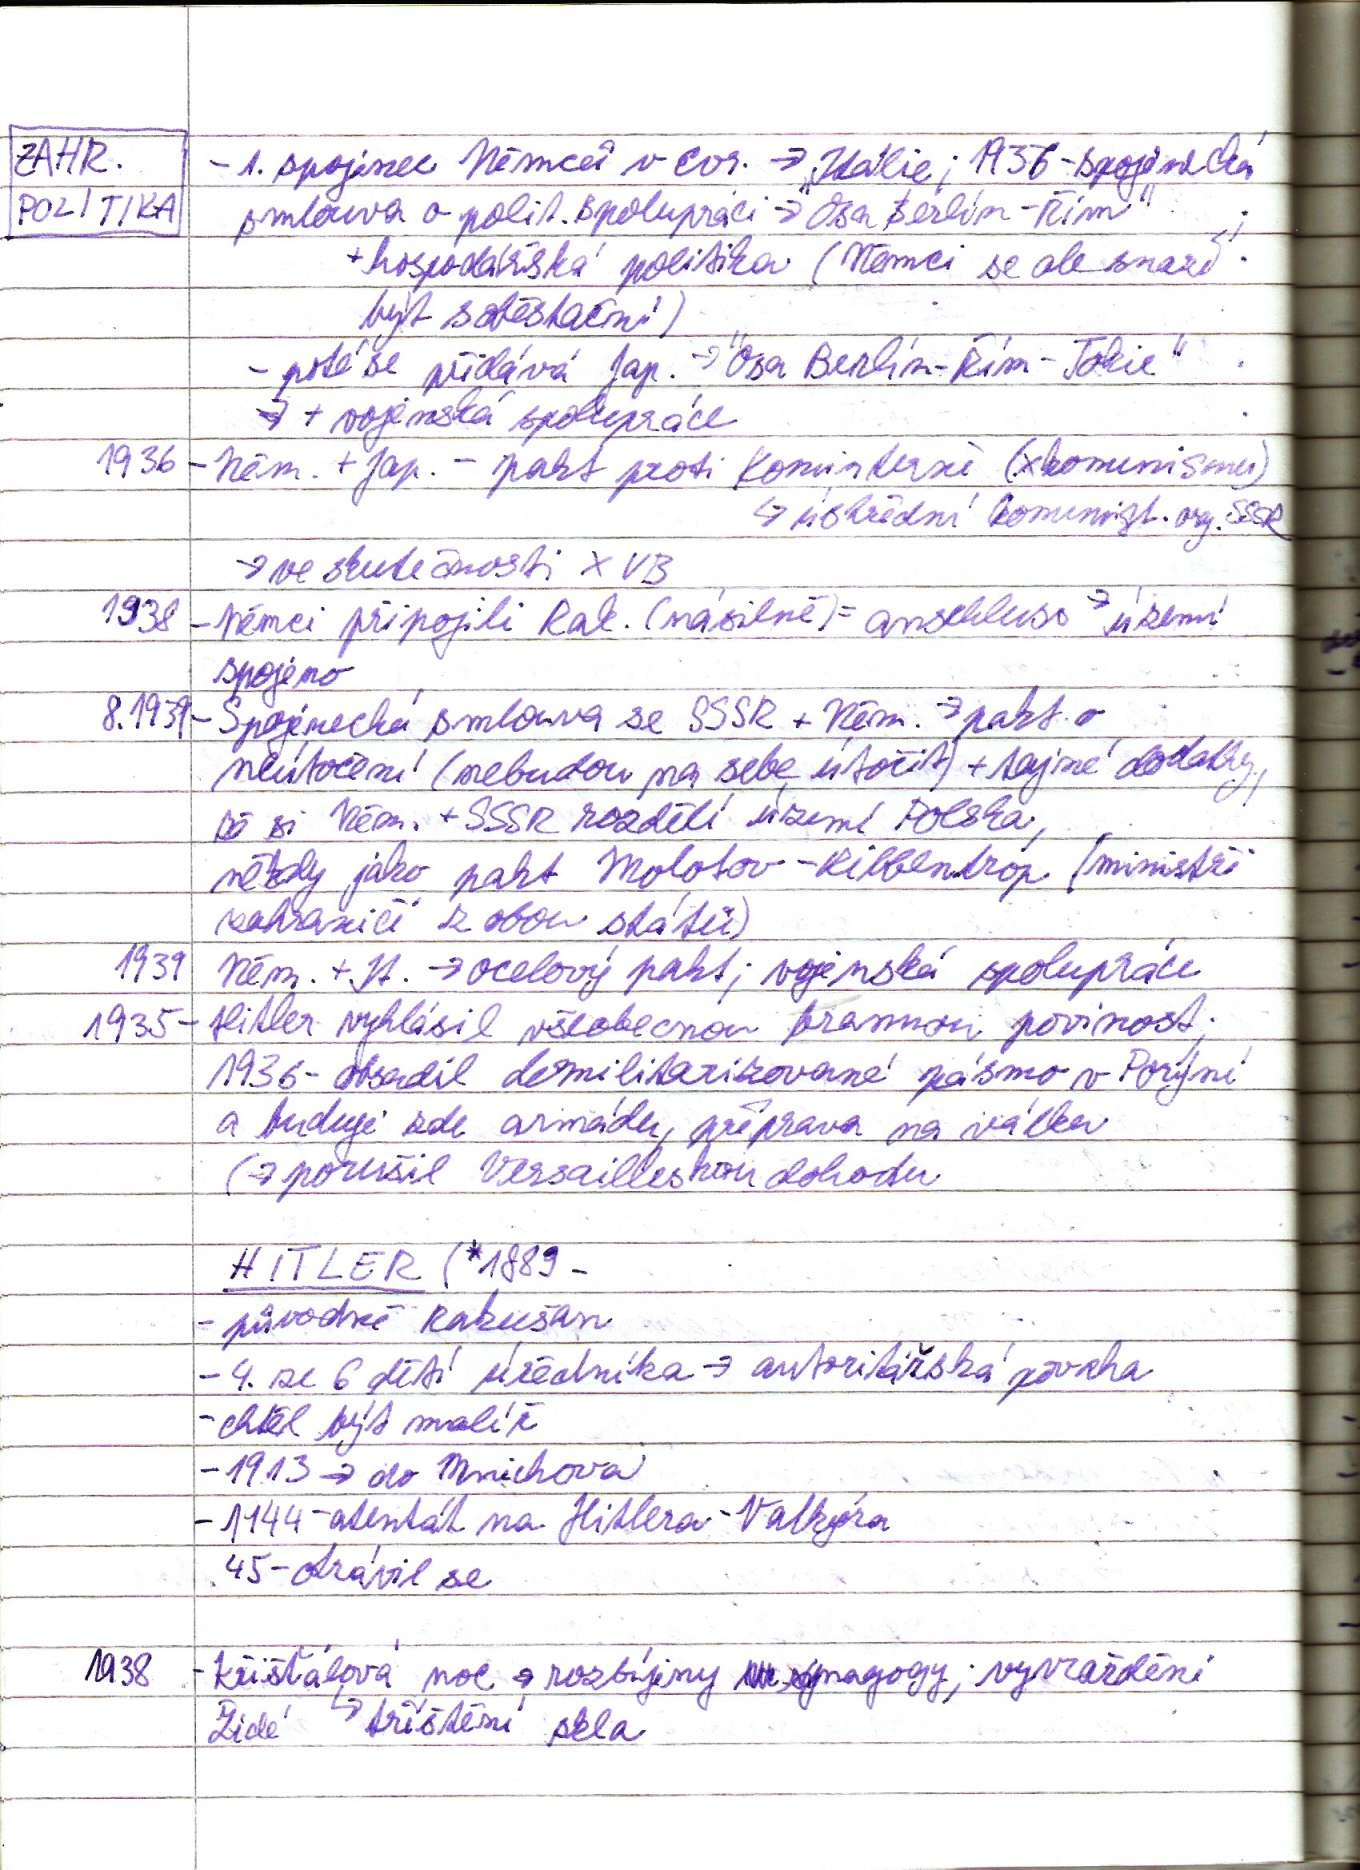 ZAHR.
POLITIKA
- 1. spojenec Němců v Evr. → Itálie; 1936 - spojenecká
smlouva o polit. spolupráci → "Osa Berlín - Řím"
+ hospodářská politika (Němci se ale snaží
být soběstační)
- poté se přidává Jap. → "Osa Berlín - Řím - Tokio"
→ + vojenská spolupráce
1936 - Něm. + Jap. - pakt proti Kominterně (x komunismu)
↳ ústřední komunist. org. SSSR
→ ve skutečnosti X VB
1938 - Němci připojili Rak. (násilně) = anschluss → území
spojeno
8.1939 - Spojenecká smlouva se SSSR + Něm. → pakt o
neútočení (nebudou na sebe útočit) + tajné dodatky,
že si Něm. + SSSR rozdělí území Polska,
někdy jako pakt Molotov - Ribbentrop (ministři
zahraničí z obou států)
1939 Něm. + It. → ocelový pakt; vojenská spolupráce
1935 - Hitler vyhlásil všeobecnou brannou povinost;
1936 - obsadil demilitarizované pásmo v Porýní
a buduje zde armádu, příprava na válku
(→ porušil Versailleskou dohodu
HITLER (*1889 -
- původně Rakušan
- 4. ze 6 dětí úředníka → autoritářská povaha
- chtěl být malíř
- 1913 → do Mnichova
- 1944 - atentát na Hitlera - Valkýra
45 - otrávil se
1938 - Křišťálová noc → rozbíjeny synagogy; vyvražděni
Židé ↳ tříštění skla